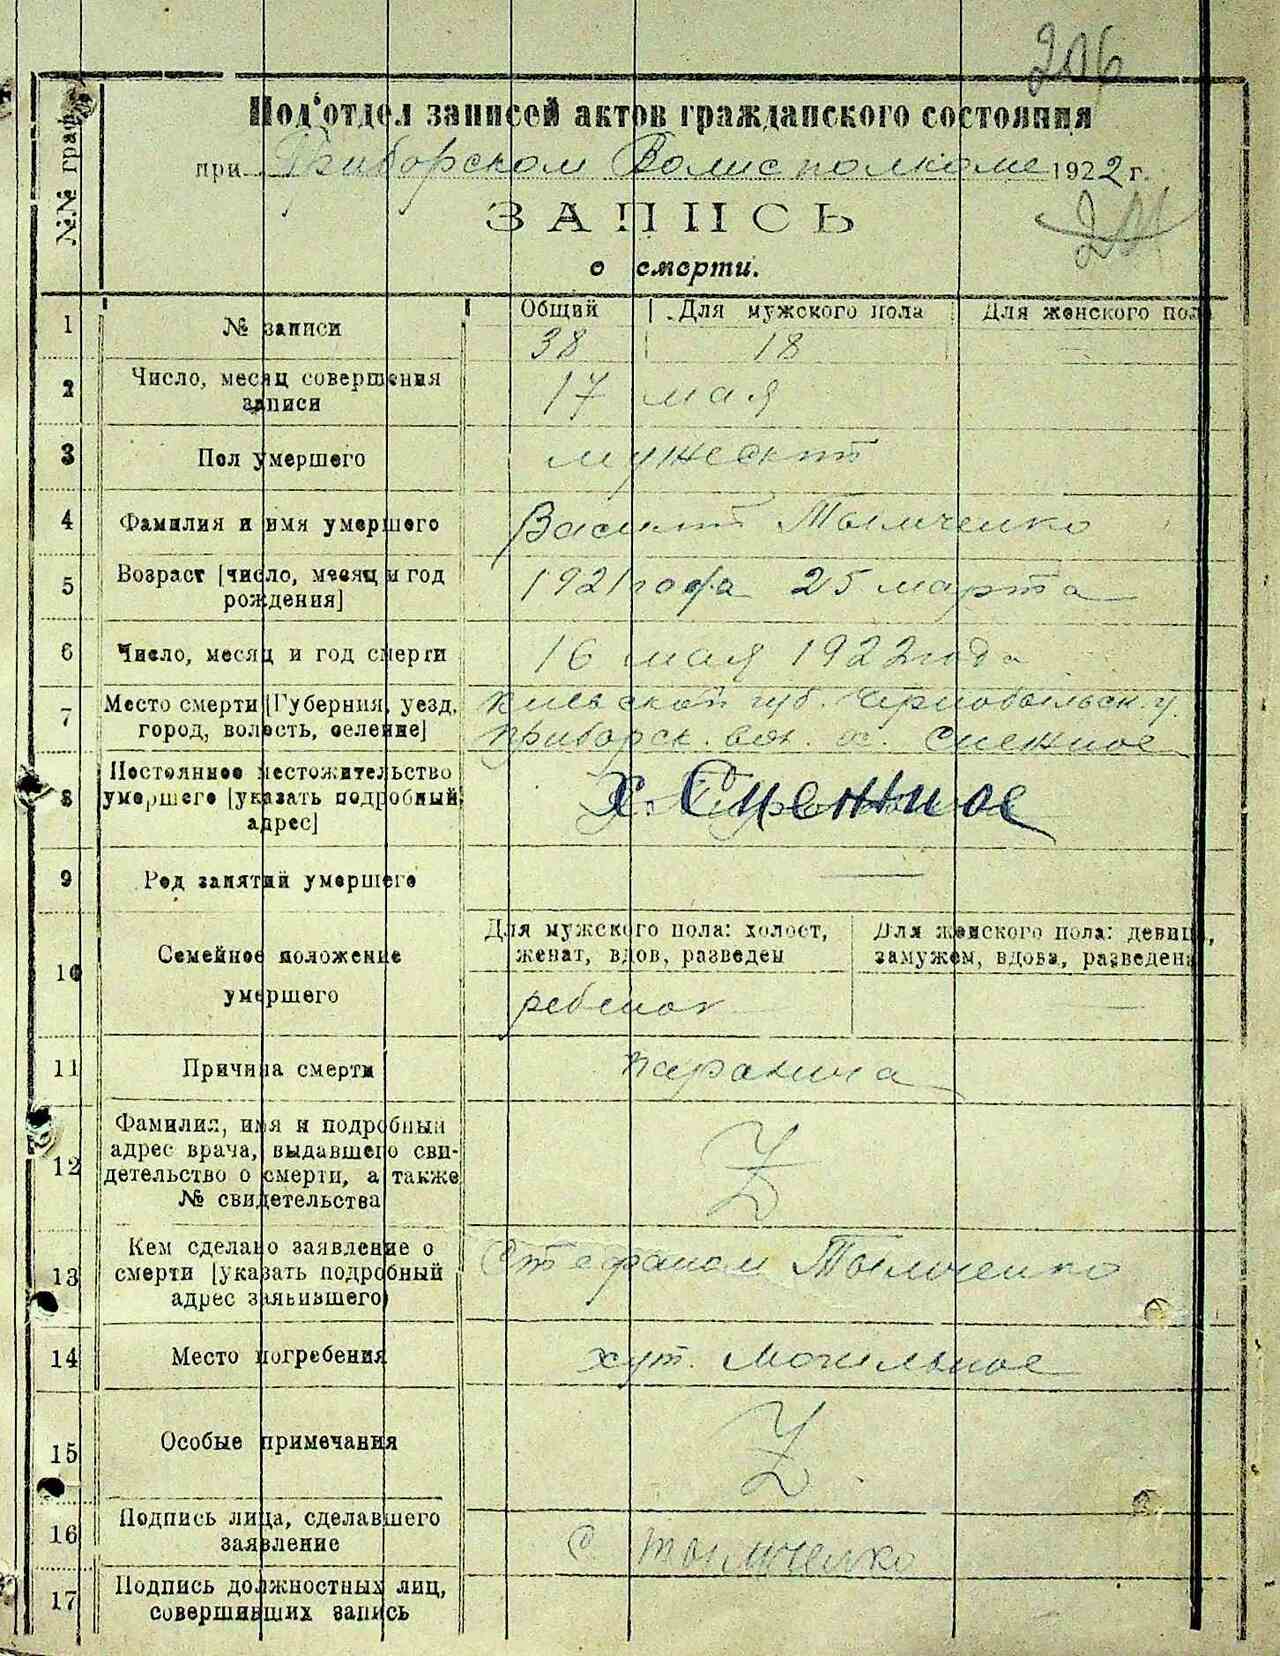 206
Под'отдел записей актов гражданского состояния
при Приборском Волисполкоме 1922 г.
ЗАПИСЬ
о смерти.
№№ граф
1 № записи Общий Для мужского пола Для женского пола
38 18
2 Число, месяц совершения записи 17 мая
3 Пол умершего мужеский
4 Фамилия и имя умершего Василий Тымченко
5 Возраст [число, месяц и год рождения] 1921 года 25 марта
6 Число, месяц и год смерти 16 мая 1922 года
7 Место смерти [Губерния, уезд, город, волость, селение] Киевской губ. Чернобыльск. у.
Приборск. вол. х. Снежное
8 Постоянное местожительство умершего [указать подробный адрес] х. Снежное
9 Род занятий умершего
10 Семейное положение умершего
Для мужского пола: холост, женат, вдов, разведен
Для женского пола: девица, замужем, вдова, разведена
ребенок
11 Причина смерти
12 Фамилия, имя и подробный адрес врача, выдавшего свидетельство о смерти, а также № свидетельства
Z
13 Кем сделано заявление о смерти [указать подробный адрес заявившего] Стефаном Тымченко
14 Место погребения хут. Могильное
15 Особые примечания Z
16 Подпись лица, сделавшего заявление С Тымченко
17 Подпись должностных лиц, совершивших запись